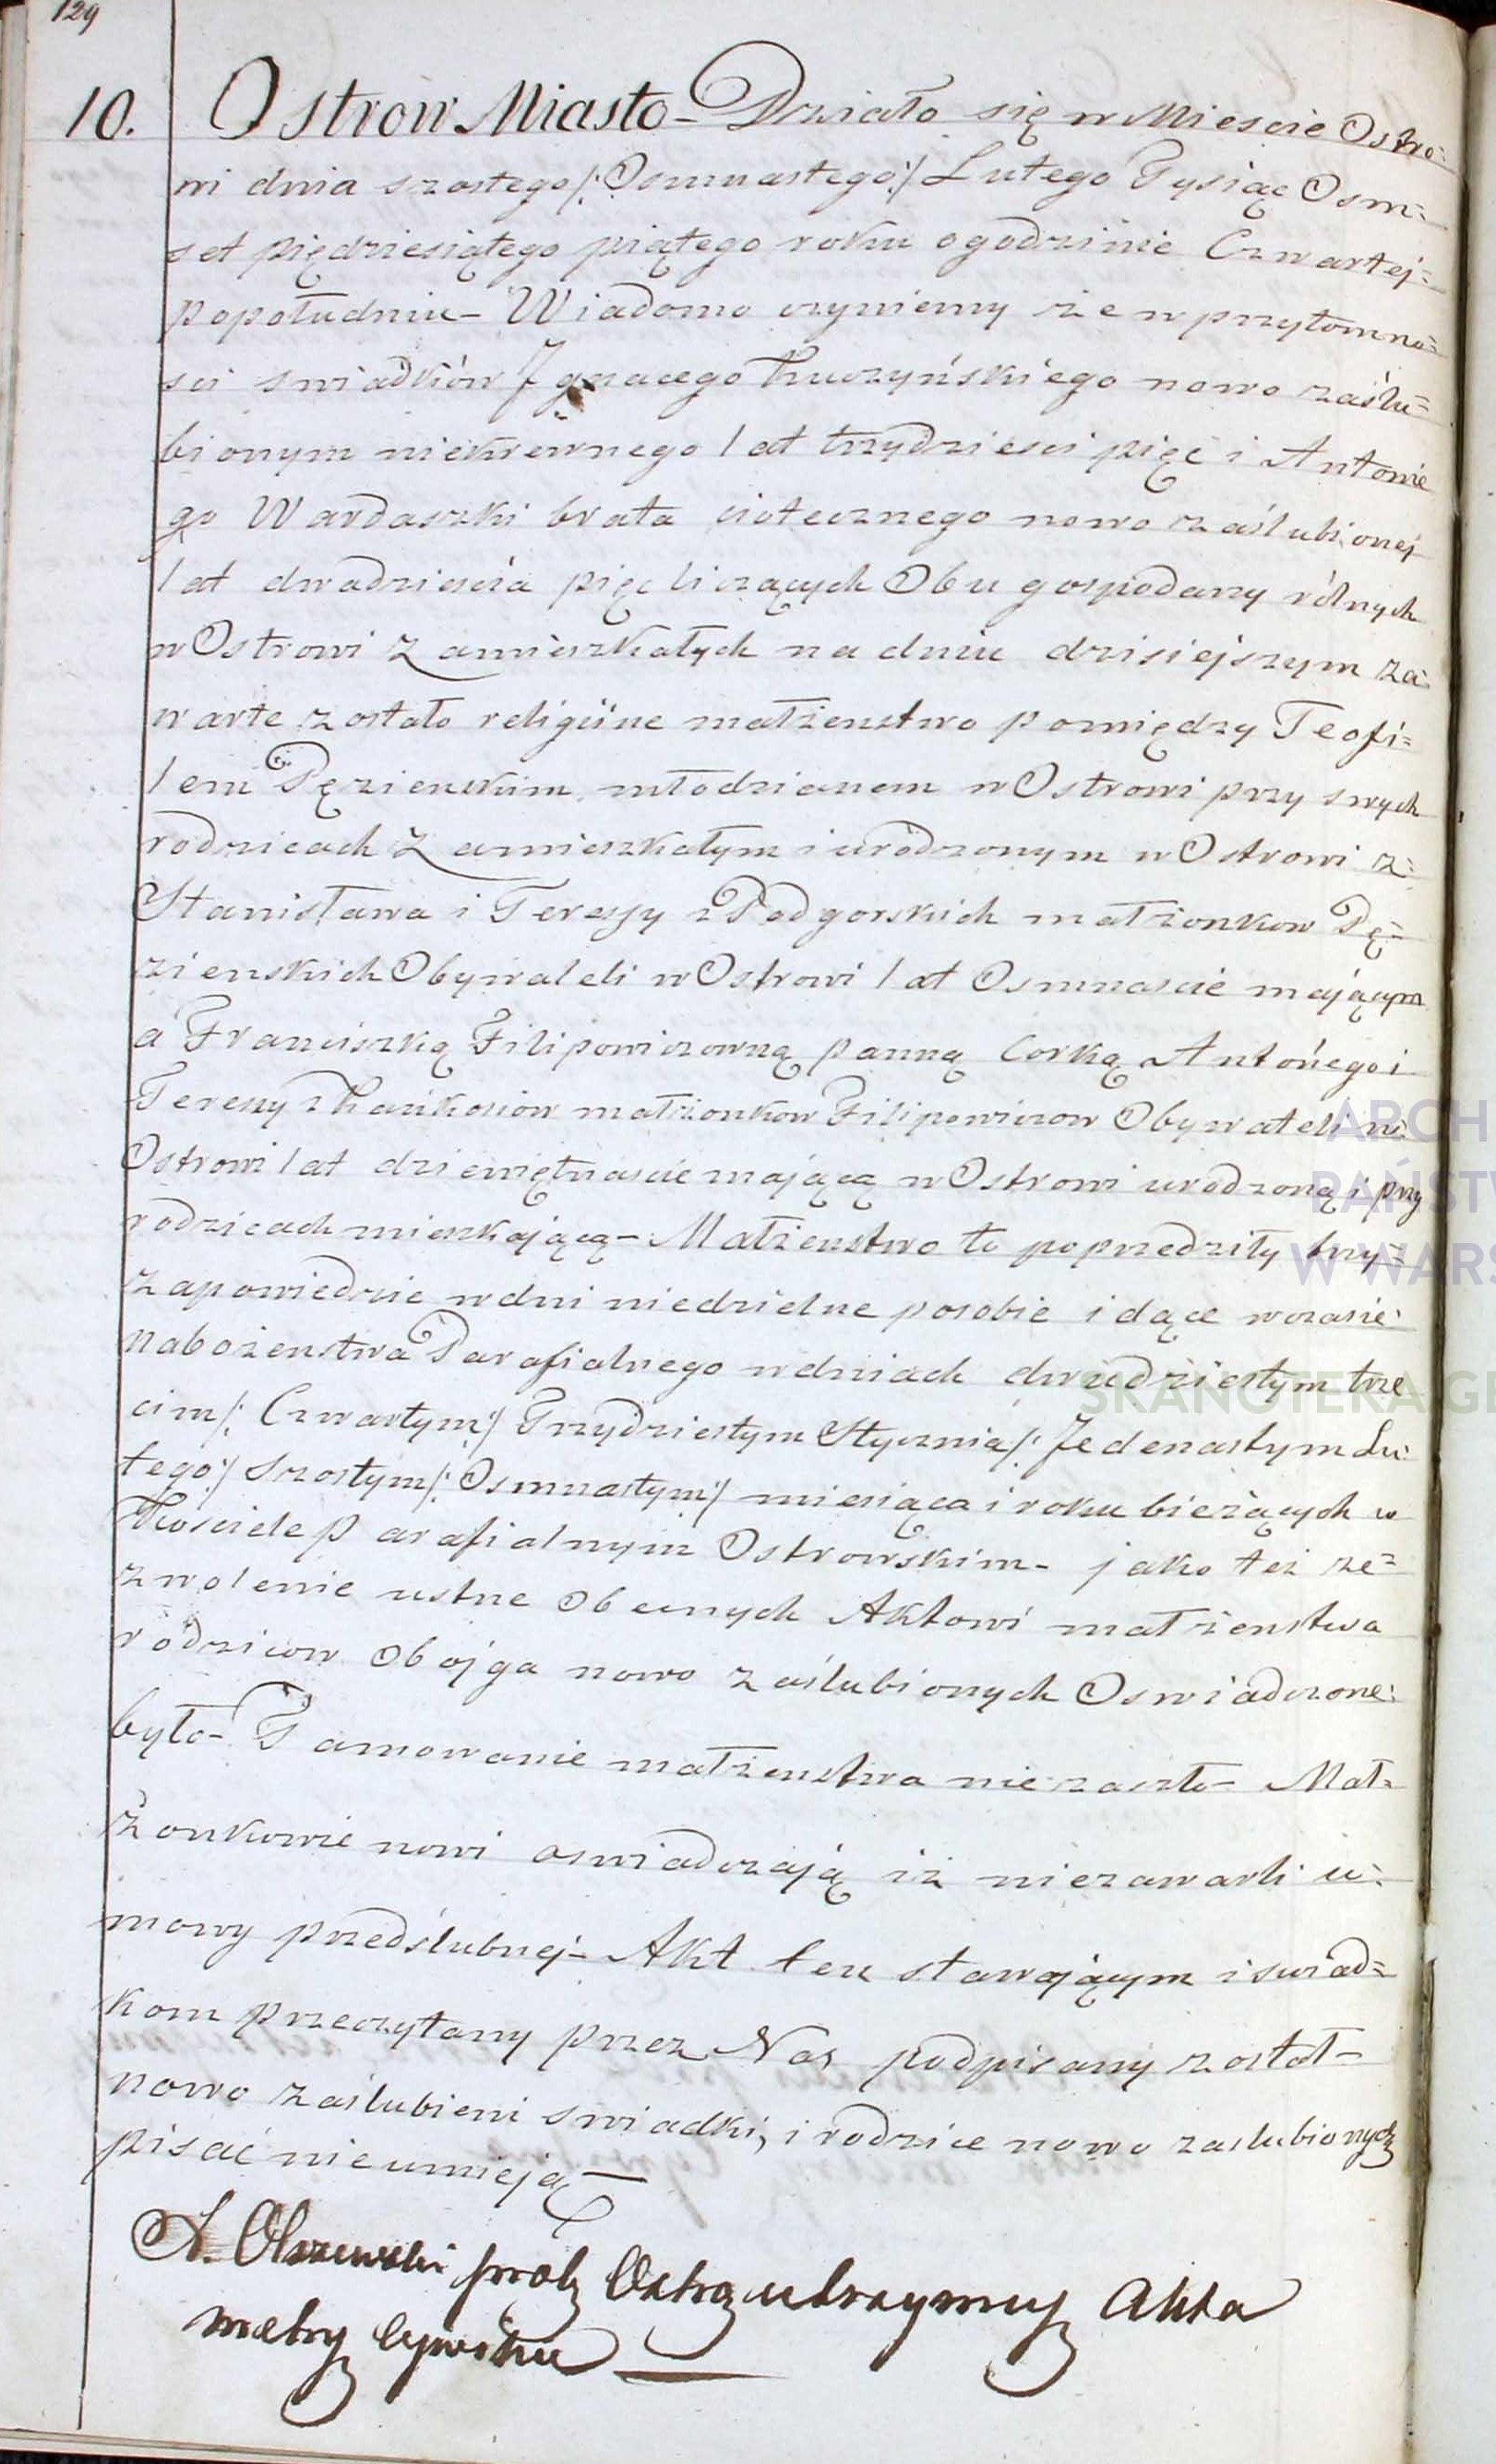 129
10. Ostrow Miasto - Działo się w Miescie Ostro=
wi dnia szostego /: Osmnastego :/ Lutego Tysiąc Osm=
set piędziesiątego piątego roku o godzinie Czwartej=
popołudniu - Wiadomo czyniemy że w przytomno=
sci swiadków Ignacego Kuczyńskiego nowo zaślu=
bionym niekrewnego lat trzydziesci pięć i Antonie
go Wardaszki brata ciotecznego nowo zaślubionej
lat dwadzieścia pięc liczących Obu gospodarzy rólnych
w Ostrowi Zamieszkałych na dniu dzisiejszym za=
warte zostało religijne małżenstwo pomiędzy Teofi=
lem Pęzienskim młodzianem w Ostrowi przy swych
rodzicach Zamieszkałym i urodzonym w Ostrowi z=
Stanisława i Teressy z Podgorskich małżonkow Pę=
zienskich Obywateli w Ostrowi lat Osmnascie mającym
a Franciszką Filipowiczowną panną Corką Antońego i
Teressy z małżonkow Filipowiczow Obywateli w
Ostrowi lat dziewiętnascie mającą w Ostrowi urodzoną i przy
rodzicach mieszkającą - Małżenstwo to poprzedziły trzy=
zapowiedzie w dni niedzielne po sobie idące w czasie
nabożenstwa Parafialnego w dniach dwudziestym trze
cim /: Czwartym :/ Trzydziestym Stycznia /: Jedenastym Lu=
tego :/ Szostym /: Osmnastym :/ miesiąca i roku bieżących w
Kościele Parafialnym Ostrowskim - jako też ze=
zwolenie ustne Obecnych Aktowi małżenstwa
rodziców Obojga nowo zaślubionych Oswiadczone
było - Tamowanie małżenstwa nie zaszło - Mał=
żonkowie nowi oswiadczają iż niezawarli u=
mowy przedślubnej - Akt ten stawającym i swiad=
kom przeczytany przez Nas podpisany został -
nowo zaślubieni swiadki, i rodzice nowo zaslubionych
pisać nieumieją
A. Olszewski prob Ostro utrzymuj Akta
metry Cywilne
ARCH
PAŃSTW
W WARS
SKANOTEKA.GE